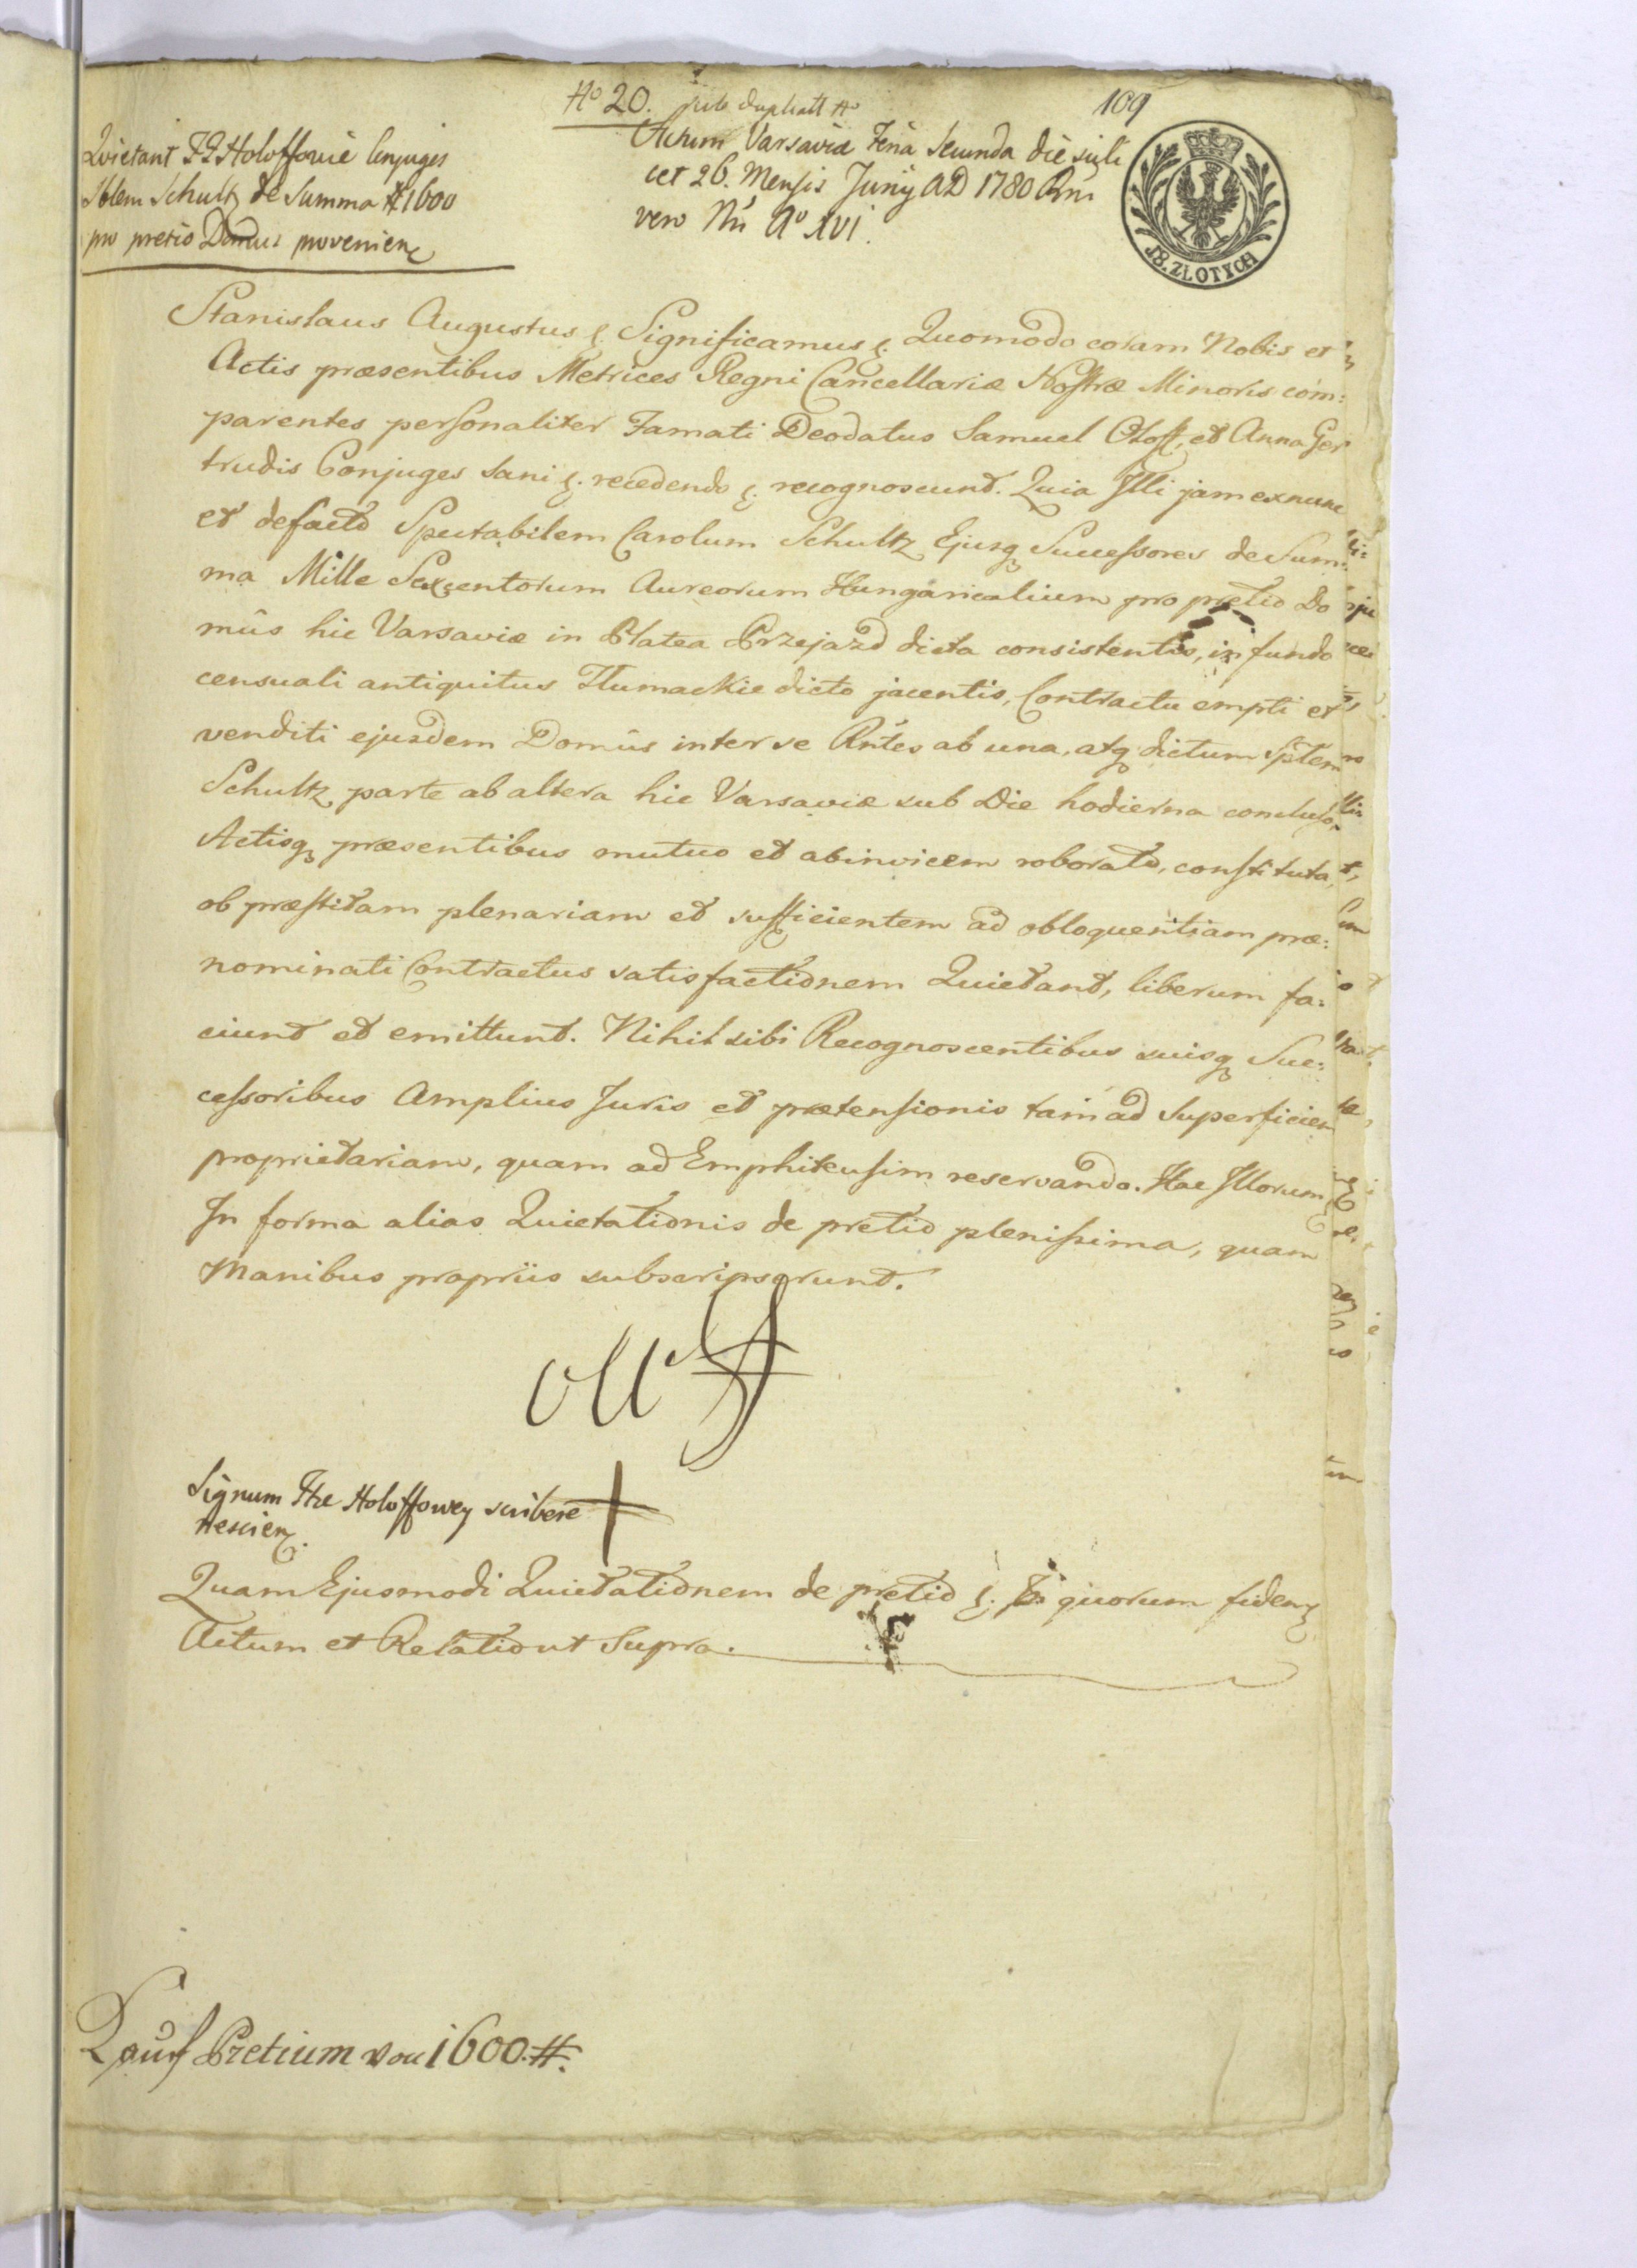 No 20.
109
Quietant FF Holoffowie Conjuges
Sblem Schultz de Summa # 1600
pro pretio Domus provenien
Actum Varsaviæ Feria Secunda die scili
cet 26. Mensis Junij AD 1780 Rni
vero Nri Ao XVI.
18. ZLOTYCH
Stanislaus Augustus &. Significamus &. Quomodo coram Nobis et
Actis præsentibus Metrices Regni Cancellariæ Nostræ Minoris com:
parentes personaliter Famati Deodatus Samuel Oloff, et Anna Ger
trudis Conjuges sani &. recedendo &. recognoscunt. Quia Illi jam exnunc
et defacto Spectabilem Carolum Schultz Ejusq Successores de Sum:
ma Mille Sexcentorum Aureorum Hungaricalium pro pretio Do
mûs hic Varsaviæ in Platea Przejazd dicta consistentis, in fundo
censuali antiquitus Tłumackie dicto jacentis, Contractu empti et
venditi ejusdem Domûs inter se Rntes ab una, atq dictum Sptem
Schultz parte ab altera hic Varsaviæ sub Die hodierna concluso,
Actisq præsentibus mutuo et abinvicem roborato, constituta,
ob præstitam plenariam et sufficientem ad obloquentiam præ:
nominati Contractus satisfactionem Quietant, liberum fa:
ciunt et emittunt. Nihil sibi Recognoscentibus suisq Suc:
cessoribus Amplius Juris et prætensionis tam ad Superficiem
proprietariam, quam ad Emphiteusim reservando. Hac Illorum
In forma alias Quietationis de pretio plenissima, quam
Manibus propriis subscripserunt.
Signum Ftæ Holoffowey scribere
nescien.
Quam Ejusmodi Quietationem de pretio &. In quorum fidem
Actum et Relatio ut Supra.
Kauf Pretium von 1600 #.